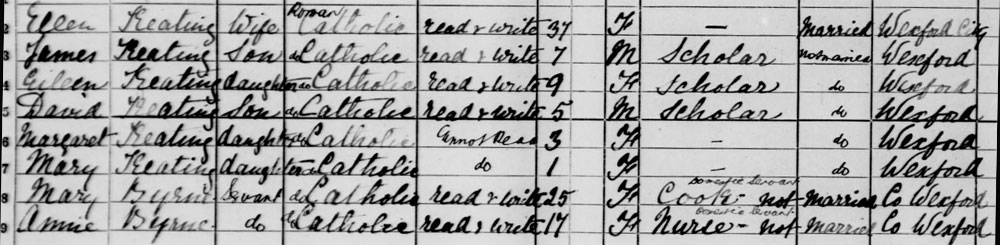 2 Ellen Keating Wife Roman Catholic read & write 37 F — Married Wexford City
3 James Keating Son do Catholic read & write 7 M Scholar not married Wexford
4 Eileen Keating daughter do Catholic read & write 9 F Scholar do Wexford
5 David Keating Son do Catholic read & write 5 M Scholar do Wexford
6 Margaret Keating daughter do Catholic Cannot Read 3 F - do Wexford
7 Mary Keating daughter do Catholic do 1 F - do Wexford
8 Mary Byrne Servant do Catholic read & write 25 F Cook Domestic Servant not married Co Wexford
9 Annie Byrne do do Catholic read & write 17 F Nurse - Domestic Servant not married Co Wexford